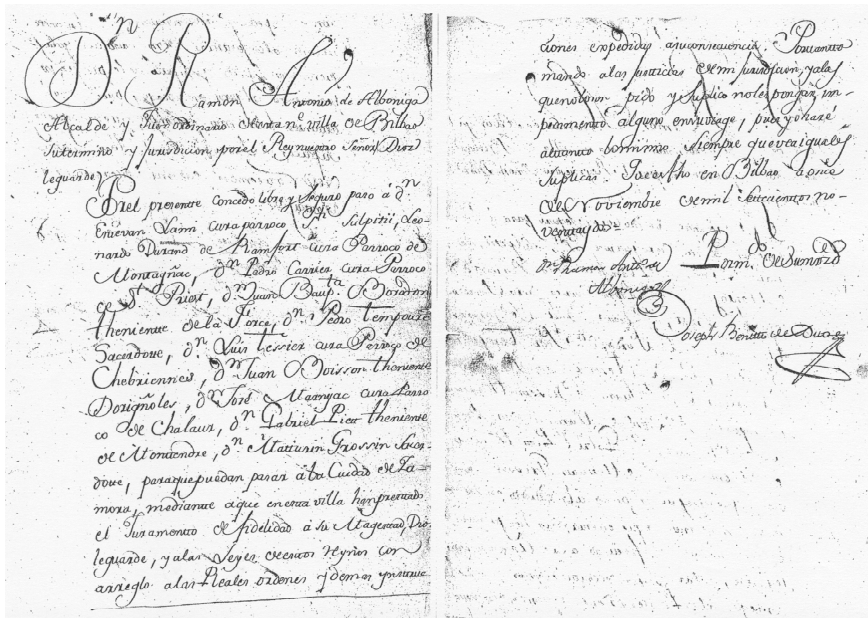 Dn Ramón Antonio de Albóniga
Alcalde y Juez ordinario de esta n.e villa de Bilbao
su termino y jurisdicion por el Rey nuestro Señor, Dios
le guarde
Por el presente concedo libre y seguro paso á dn
Estevan Lann cura parroco Sn Sulpitii, Leo-
nardo Durand de Ramfort cura Parroco de
Montagñac, dn Pedro Carrier cura Parroco
de St Priest, dn Juan Bapta
theniente de la Force, dn Pedro Tempoure
Sacerdote, dn Luis tessier cura Parroco de
Chebriennes, dn Juan Boisson theniente
Dorigñoles, dn José Marnyac cura Parro
co de Chalaux, dn Gabriel Picт theniente
de Montendre, dn Matturin Grossin Sacer-
dote, para que puedan pasar á la Ciudad de Za-
mora, mediante a que en esta villa han prestado
el Juramento de fidelidad á su Magestad, Dios
le guarde, y a las Leyes de estos Reynos con
arreglo a las Reales ordenes y demas ynstruc
ciones expedidas a su consecuencia. Por tanto
mando a las justicias de mi jurisdicion, y a las
que no lo son pido y suplico no les pongan im-
pedimento alguno en su viage, pues yo haré
al tanto lo mismo siempre que vea iguales
suplicas. Fecho en Bilbao a
de Noviembre de mil setecientos no-
venta y dos-
Dn Ramon Antto de
Albóniga
Por mdo de su mrd
Joseph Benito de